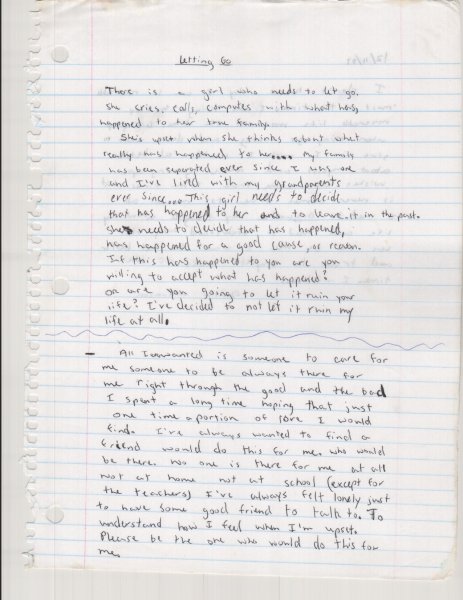 Letting Go
There is a girl who needs to let go.
She cries, calls, computes with what has
happened to her love family.
She's upset when she thinks about what
really has happened to her.... My family
has been separated ever since I was one
and I've lived with my grandparents
ever since... This girl needs to decide
that has happened to her and to leave it in the past.
she needs to decide that has happened,
has happened for a good cause, or reason.
If this has happened to you are you
willing to accept what has happened?
Or are you going to let it ruin your
life? I've decided to not let it ruin my
life at all.
- All I wanted is someone to care for
me someone to be always there for
me right through the good and the bad
I spent a long time hoping that just
one time a portion of love I would
find. I've always wanted to find a
friend would do this for me. who would
be there. No one is there for me at all
not at home not at school (except for
the teachers) I've always felt lonely just
to have some good friend to talk to. To
understand how I feel when I'm upset.
Please be the one who would do this for
me.